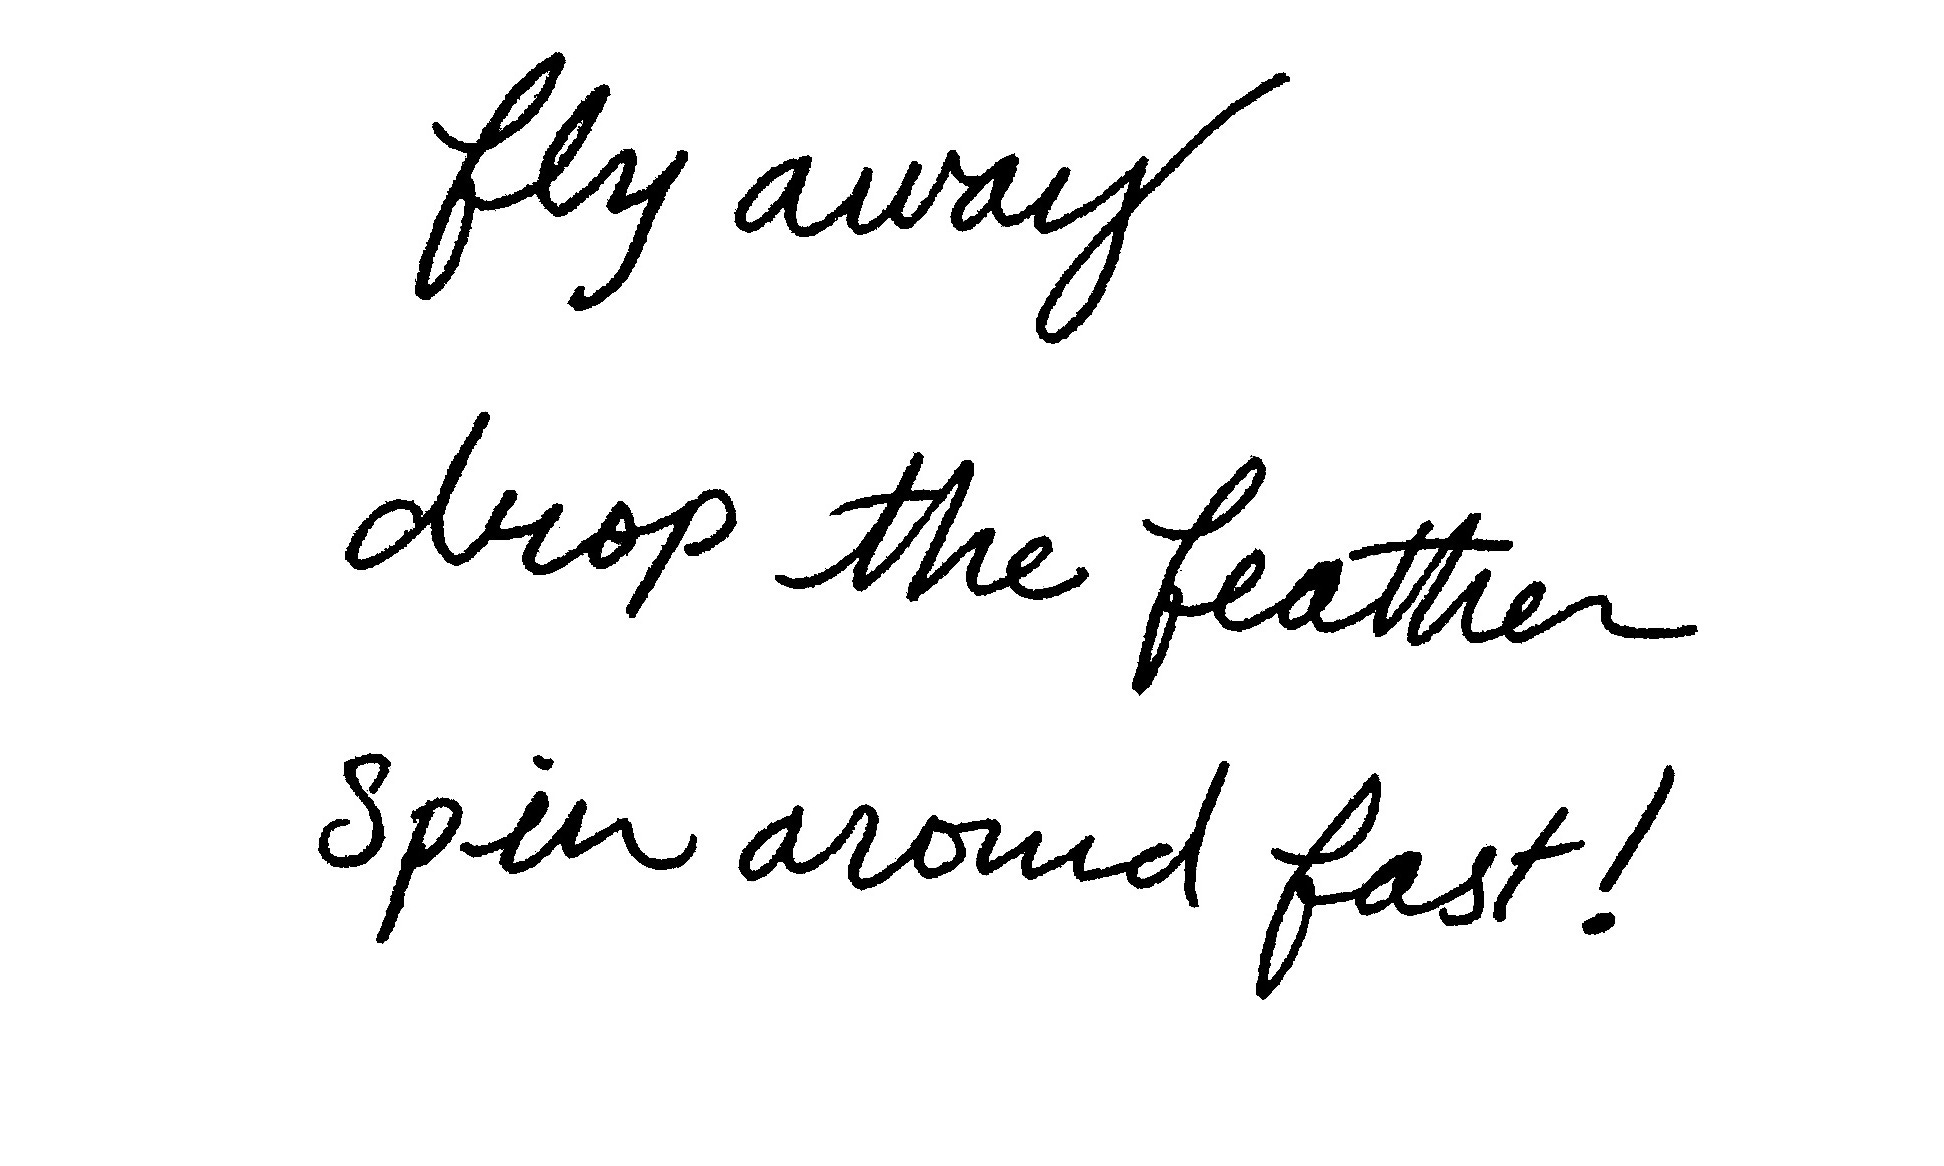 fly away
drop the feather
spin around fast!